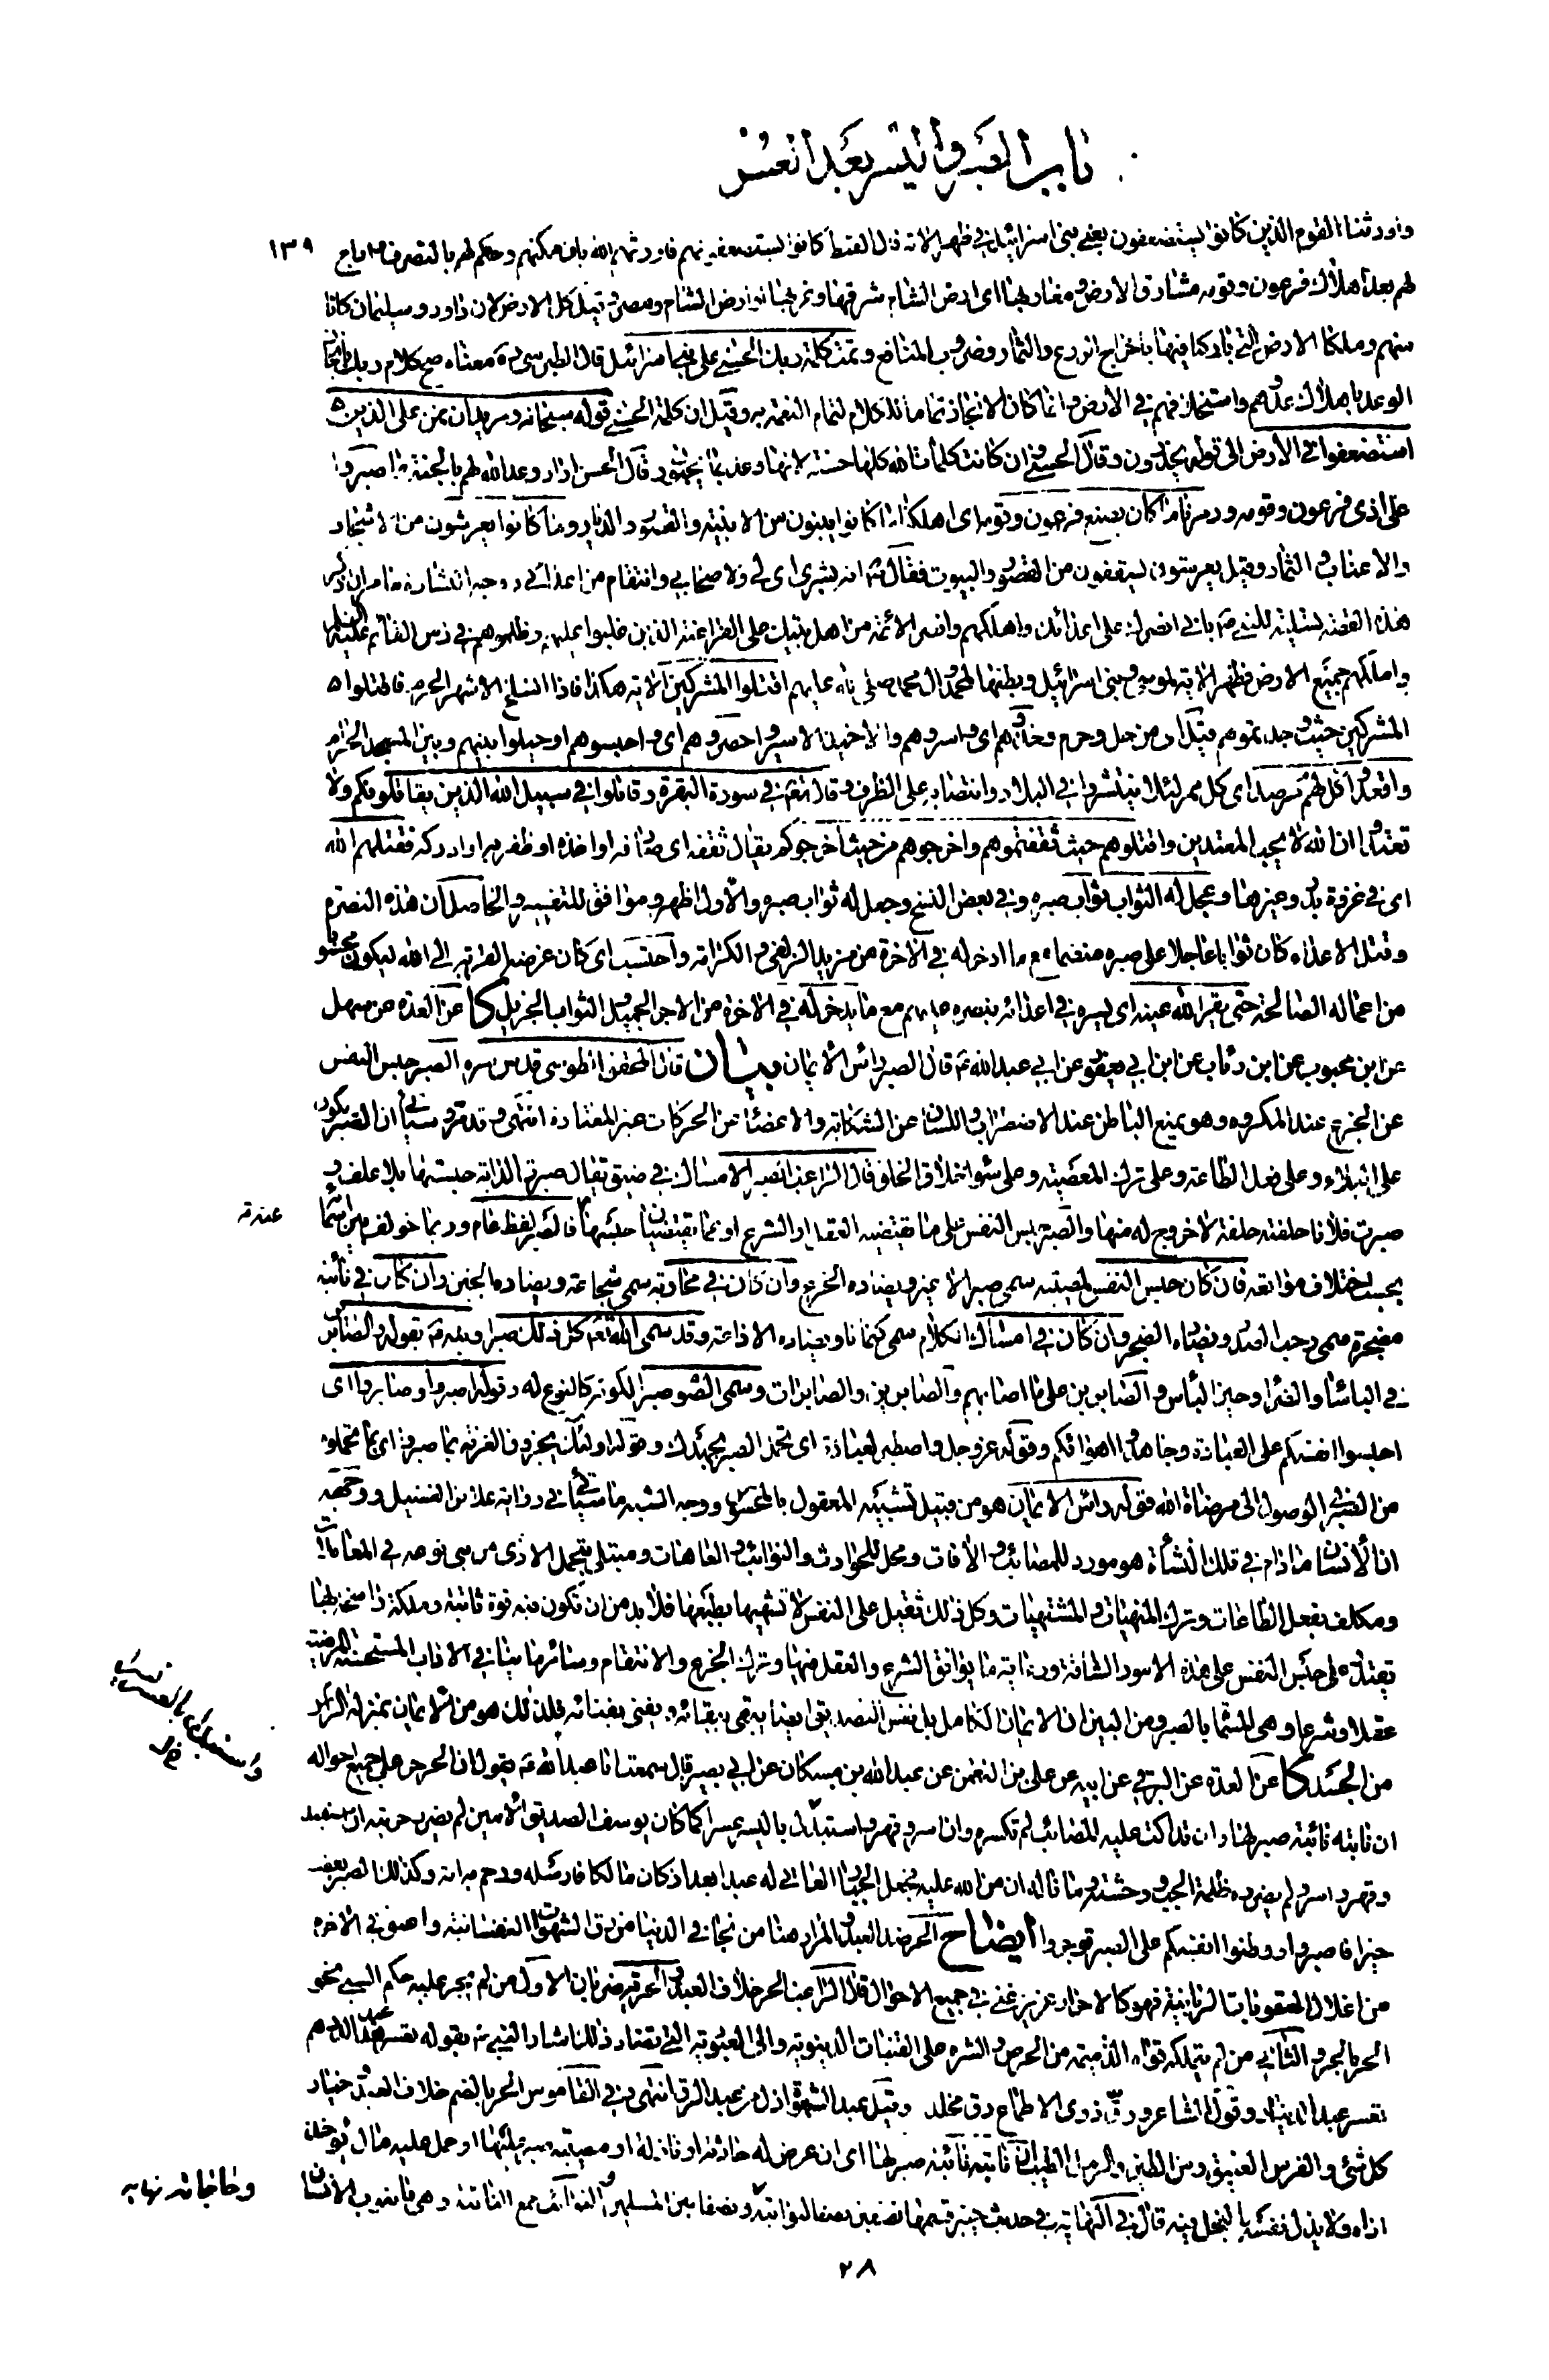 باب الصبر واليسر بعد العسر
واورثنا القوم الذين كانوا يستضعفون يعني بني اسرائيل في ظهر الآية فان القبط كانوا يستضعفونهم فاورثهم الله بان مكنهم وحكم لهم بالتصرف واباح ١٣٩
لهم بعد اهلاك فرعون وقومه مشارق الارض ومغاربها اى ارض الشام شرقها وغربها او ارض الشام ومصر وقيل كل الارض لان داود وسليمان كانا
منهم وملكا الارض التي باركنا فيها باخراج الزرع والثمار وضروب المنافع وتمت كلمة ربك الحسنى على بني اسرائيل قال الطبرسي ره معناه صح كلام ربك بانجاز
الوعد باهلاك عدوهم واستخلافهم في الارض وانما كان الانجاز تماما للكلام لتمام النعمة به وقيل ان كلمة الحسنى قوله سبحانه ونريد ان نمن على الذين
استضعفوا في الارض الى قوله يحذرون وقال الحسنى وان كانت كلمات الله كلها حسنة لانها وعد بما يحبون وقال الحسن اراد وعد الله لهم بالجنة بما صبروا
على اذى فرعون وقومه ودمرنا ما كان يصنع فرعون وقومه اى اهلكنا ما كانوا يبنون من الابنية والقصور والديار وما كانوا يعرشون من الاشجار
والاعناب والثمار وقيل يعرشون يسقفون من القصور والبيوت فقال ص انه بشرى اى لى ولاصحابي وانتقام من اعدائي ووجه البشارة ما مر ان ذكر
هذه القصة تسلية للنبي ص باني انصرك على اعدائك واهلكهم وانصر الائمة من اهل بيتك على الفراعنة الذين غلبوا عليهم وظلموهم في زمن القائم عليه السلام
واملكهم جميع الارض فظهر الآية لموسى وبني اسرائيل وبطنها لمحمد وال محمد صلى الله عليهم اقتلوا المشركين الآية هكذا فاذا انسلخ الاشهر الحرم فاقتلوا
المشركين حيث وجدتموهم قيل اى من حل وحرم وخذوهم اى واسروهم والاخيذ الاسير واحصروهم اى واحبسوهم او حيلوا بينهم وبين المسجد الحرام
واقعدوا لهم كل مرصد اى كل ممر لئلا ينتشروا في البلاد وانتصابه على الظرف وقال تعالى في سورة البقرة وقاتلوا في سبيل الله الذين يقاتلونكم ولا
تعتدوا ان الله لا يحب المعتدين واقتلوهم حيث ثقفتموهم واخرجوهم من حيث اخرجوكم يقال ثقفه اى صادفه او اخذه او ظفر به او ادركه فقتلهم الله
اى في غزوة بدر وغيرها وعجل له الثواب ثواب صبره وفي بعض النسخ وجعل له ثواب صبره والاول اظهر وموافق للتفسير والحاصل ان هذه النصرة
وقتل الاعداء كان ثوابا عاجلا على صبره منضما مع ما ادخر له في الآخرة من مزيد الزلفى والكرامة واحتسب اى كان غرضه القربة الى الله ليكون محسوبا
من اعماله الصالحة حتى يقر الله عينه اى يسره في اعدائه بنصره عليهم مع ما يدخر له في الآخرة من الاجر الجميل والثواب الجزيل كا عن العدة عن سهل
عن ابن محبوب عن ابن رئاب عن ابن ابي يعفور عن ابي عبد الله ع قال الصبر رأس الايمان بيان قال المحقق الطوسي قدس سره الصبر حبس النفس
عن الجزع عند المكروه وهو يمنع الباطن عن الاضطراب واللسان عن الشكاية والاعضاء عن الحركات غير المعتادة انتهى وقد مر وسيأتي ان الصبر يكون
على البلاء وعلى فعل الطاعة وعلى ترك المعصية وعلى سوء اخلاق الخلق قال الراغب الصبر الامساك في ضيق يقال صبرت الدابة حبستها بلا علف و
صبرت فلانا خلفته خلفة لا خروج له منها والصبر حبس النفس على ما يقتضيه العقل او الشرع او عما يقتضيان حبسها عنه فالصبر لفظ عام وربما خولف بين اسمائه
بحسب اختلاف مواقعه فان كان حبس النفس لمصيبة سمي صبرا لا غير ويضاده الجزع وان كان في محاربة سمي شجاعة ويضاده الجبن وان كان في نائبة
مضجرة سمي رحب الصدر ويضاده الضجر وان كان في امساك الكلام سمي كتمانا ويضاده الاذاعة وقد سمى الله تعالى كل ذلك صبرا ونبه عليه بقوله والصابرين
في البأساء والضراء وحين البأس والصابرين على ما اصابهم والصابرين والصابرات وسمي الصوم صبرا لكونه كالنوع له وقوله اصبروا وصابروا اى
احبسوا انفسكم على العبادة وجاهدوا اهوائكم وقوله عز وجل واصطبر لعبادته اى تحمل الصبر بجهدك وقوله اولئك يجزون الغرفة بما صبروا اى بما تحملوه
من الصبر في الوصول الى مرضاة الله قوله رأس الايمان هو من قبيل تشبيه المعقول بالمحسوس ووجه الشبه ما سيأتي في رواية علاء بن الفضيل ووجهه
ان الانسان ما دام في تلك النشأة هو مورد للمصائب والآفات ومحل للحوادث والنوائب والعاهات ومبتلى بتحمل الاذى من بني نوعه في المعاملات
ومكلف بفعل الطاعات وترك المنهيات والمشتهيات وكل ذلك ثقيل على النفس لا تشتهيها بطبعها فلا بد من ان تكون فيه قوة ثابتة وملكة راسخة بها
يقتدر على حبس النفس على هذه الامور الشاقة ورعاية ما يوافق الشرع والعقل فيها وترك الجزع والانتقام وسائر ما ينافي الآداب المستحسنة المرضية
عقلا وشرعا وهي المسماة بالصبر ومن البين ان الايمان الكامل بل نفس التصديق ايضا يبقى ببقائه ويفنى بفنائه فلذلك هو من الايمان بمنزلة الرأس
من الجسد كا عن العدة عن البرقي عن ابيه عن علي بن النعمن عن عبد الله بن مسكان عن ابي بصير قال سمعت ابا عبد الله ع يقول ان الحر حر على جميع احواله
ان نابته نائبة صبر لها وان تداكت عليه المصائب لم تكسره وان اسر وقهر واستبدل باليسر عسرا كما كان يوسف الصديق الامين لم يضرر حريته ان استعبد
وقهر واسر ولم يضرره ظلمة الجب ووحشته وما ناله ان من الله عليه فجعل الجبار العاتي له عبدا بعد اذ كان مالكا فارسله ورحم به امة وكذلك الصبر يعقب
خيرا فاصبروا ووطنوا انفسكم على الصبر توجروا ايضاح الحر ضد العبد والمراد هنا من نجا في الدنيا من رق الشهوات النفسانية واعتق في الآخرة
من اغلال العقوبات الربانية فهو كالاحرار عزيز غني في جميع الاحوال قال الراغب الحر خلاف العبد والحرية ضربان الاول من لم يجر عليه حكم السبي نحو
الحر بالحر والثاني من لم يتملكه قواه الذميمة من الحرص والشره على القنيات الدنيوية والى العبودية التي تضاد ذلك اشار النبي ص بقوله تعس عبد الدرهم
تعس عبد الدينار وقول الشاعر ورق ذوى الاطماع رق مخلد وقيل عبد الشهوة اذل من عبد الرق انتهى وفي القاموس الحر بالضم خلاف العبد وخيار
كل شئ والفرس العتيق ومن الطين والرمل الطيب ان نابته نائبة صبر لها اى ان عرض له حادثة او نازلة او مصيبة صبر عليها او حمل عليه مال يؤخذ
اداه ولا يذل نفسه بالبخل فيه قال في النهاية في حديث خيبر قسمها نصفين نصفا لنوائبه ونصفا بين المسلمين النوائب جمع النائبة وهي ما ينوب الانسان
وحاجاته نهاية
٢٨